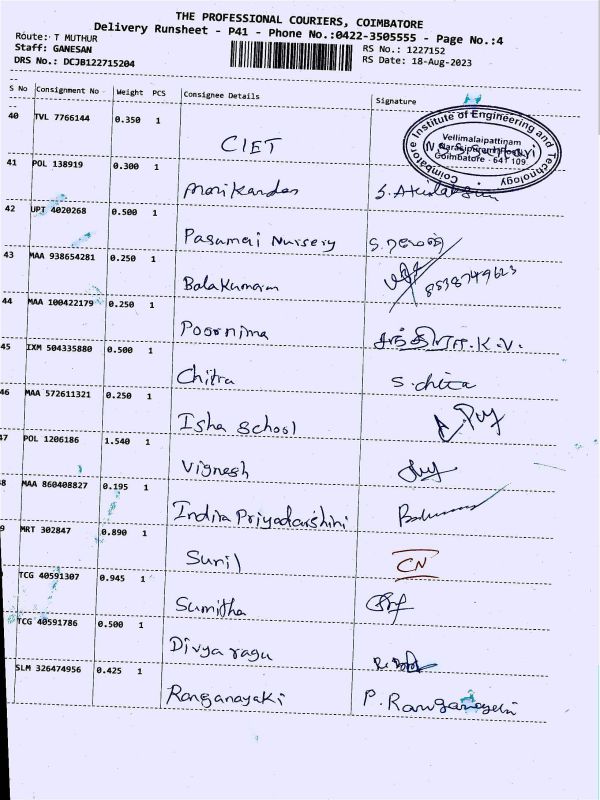 THE PROFESSIONAL COURIERS, COIMBATORE
Delivery Runsheet - P41 - Phone No.:0422-3505555 - Page No.:4
Route: T MUTHUR
Staff: GANESAN RS No.: 1227152
DRS No.: DCJB122715204 RS Date: 18-Aug-2023
S No Consignment No Weight PCS Consignee Details Signature
40 TVL 7766144 0.350 1 CIET
Coimbatore Institute of Engineering and Technology
Vellimalaipattinam
Coimbatore - 641 109
41 POL 138919 0.300 1 Manikandan
42 UPT 4020268 0.500 1 Pasumai Nursery
43 MAA 938654281 0.250 1 Balakumaran 8538749623
44 MAA 100422179 0.250 1 Poornima
45 IXM 504335880 0.500 1 Chitra S. chitra
46 MAA 572611321 0.250 1 Isha School
47 POL 1206186 1.540 1 Vignesh
8 MAA 860408827 0.195 1 Indira Priyadarshini
9 MRT 302847 0.890 1 Sunil CN
TCG 40591307 0.945 1 Sumitha
TCG 40591786 0.500 1 Divya ragu
SLM 326474956 0.425 1 Ranganayaki P. Ranganayaki